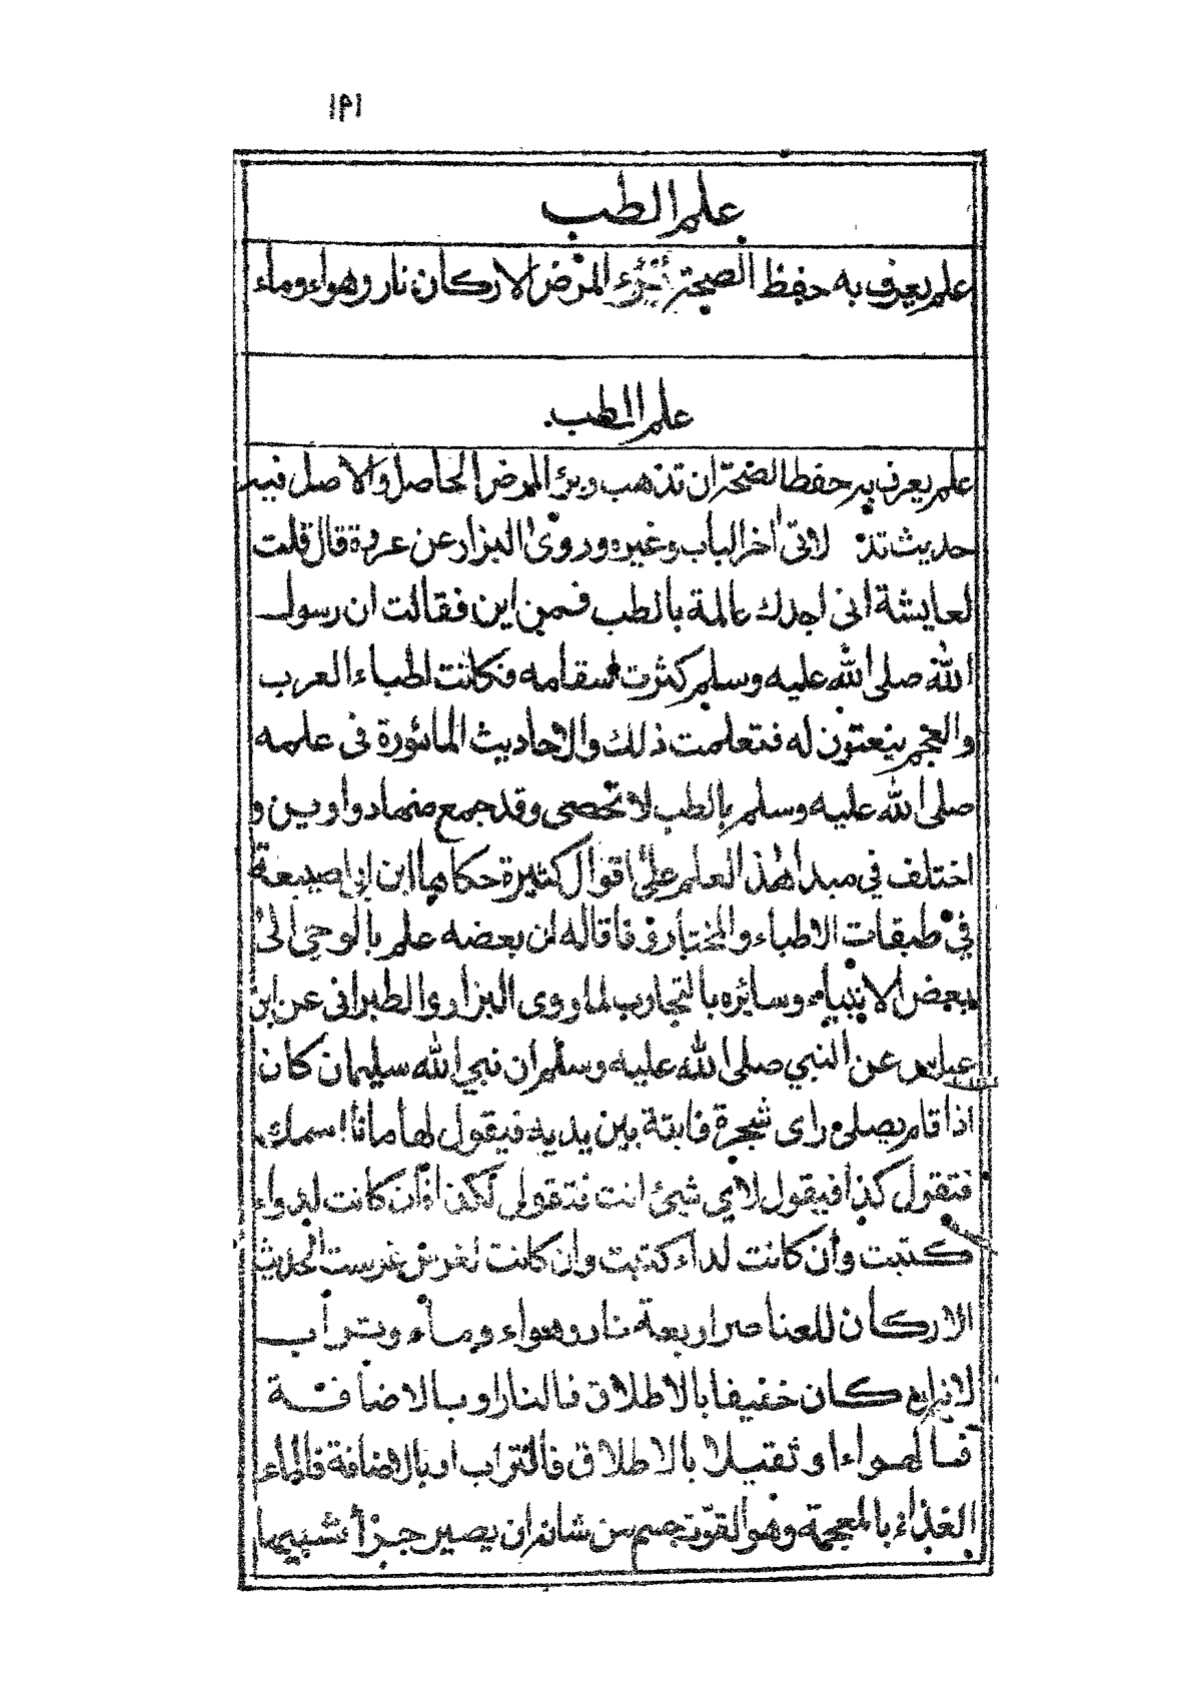 ١٩١
علم الطب
علم يعرف به حفظ الصحة وبرء المرض الاركان نار وهواء وماء
علم الطب
علم يعرف به حفظ الصحة ان تذهب وبرئ المرض الحاصل والاصل فيه
حديث لاتى اخر الباب وغيره وروى البزار عن عروة قال قلت
لعايشة انى اجدك عالمة بالطب فمن اين فقالت ان رسول
الله صلى الله عليه وسلم كثرت اسقامه فكانت اطباء العرب
والعجم ينعتون له فتعلمت ذلك والاحاديث الماثورة فى علمه
صلى الله عليه وسلم بالطب لا تحصى وقد جمع منها دواوين و
اختلف في مبدا هذا العلم على اقوال كثيرة حكاها ابن ابى اصيبعة
في طبقات الاطباء والمختار وفاقا له ان بعضه علم بالوحي الى
بعض الانبياء وسائره بالتجارب لما روى البزار والطبرانى عن ابن
عباس عن النبي صلى الله عليه وسلم ان نبي الله سليمان كان
اذا قام يصلى راى شجرة فابتة بين يديه فيقول لها ما اسمك
فتقول كذا فيقول لاي شيئ انت فتقول لكذا فان كانت لدواء
كتبت وان كانت لداء كتبت وان كانت لغرس غرست الحديث
الاركان للعناصر اربعة نار وهواء وماء وتراب
لانه ان كان خفيفا بالاطلاق فالنار او بالاضافة
فالهواء او ثقيلا بالاطلاق فالتراب او بالاضافة فالماء
الغذاء بالمعجمة وهو القوت جسم من شانه ان يصير جزأ شبيها